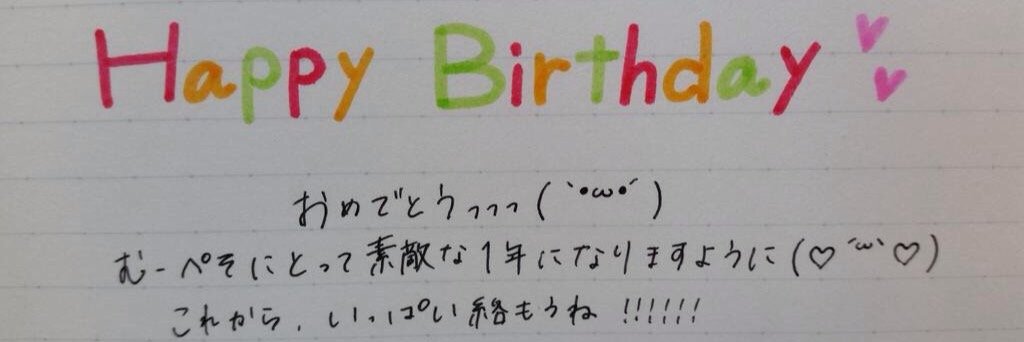 Happy Birthday
おめでとうっっっ(｀•ω•´)
むーぺそにとって素敵な1年になりますように(♡´ω`♡)
これから、いっぱい絡もうね!!!!!!